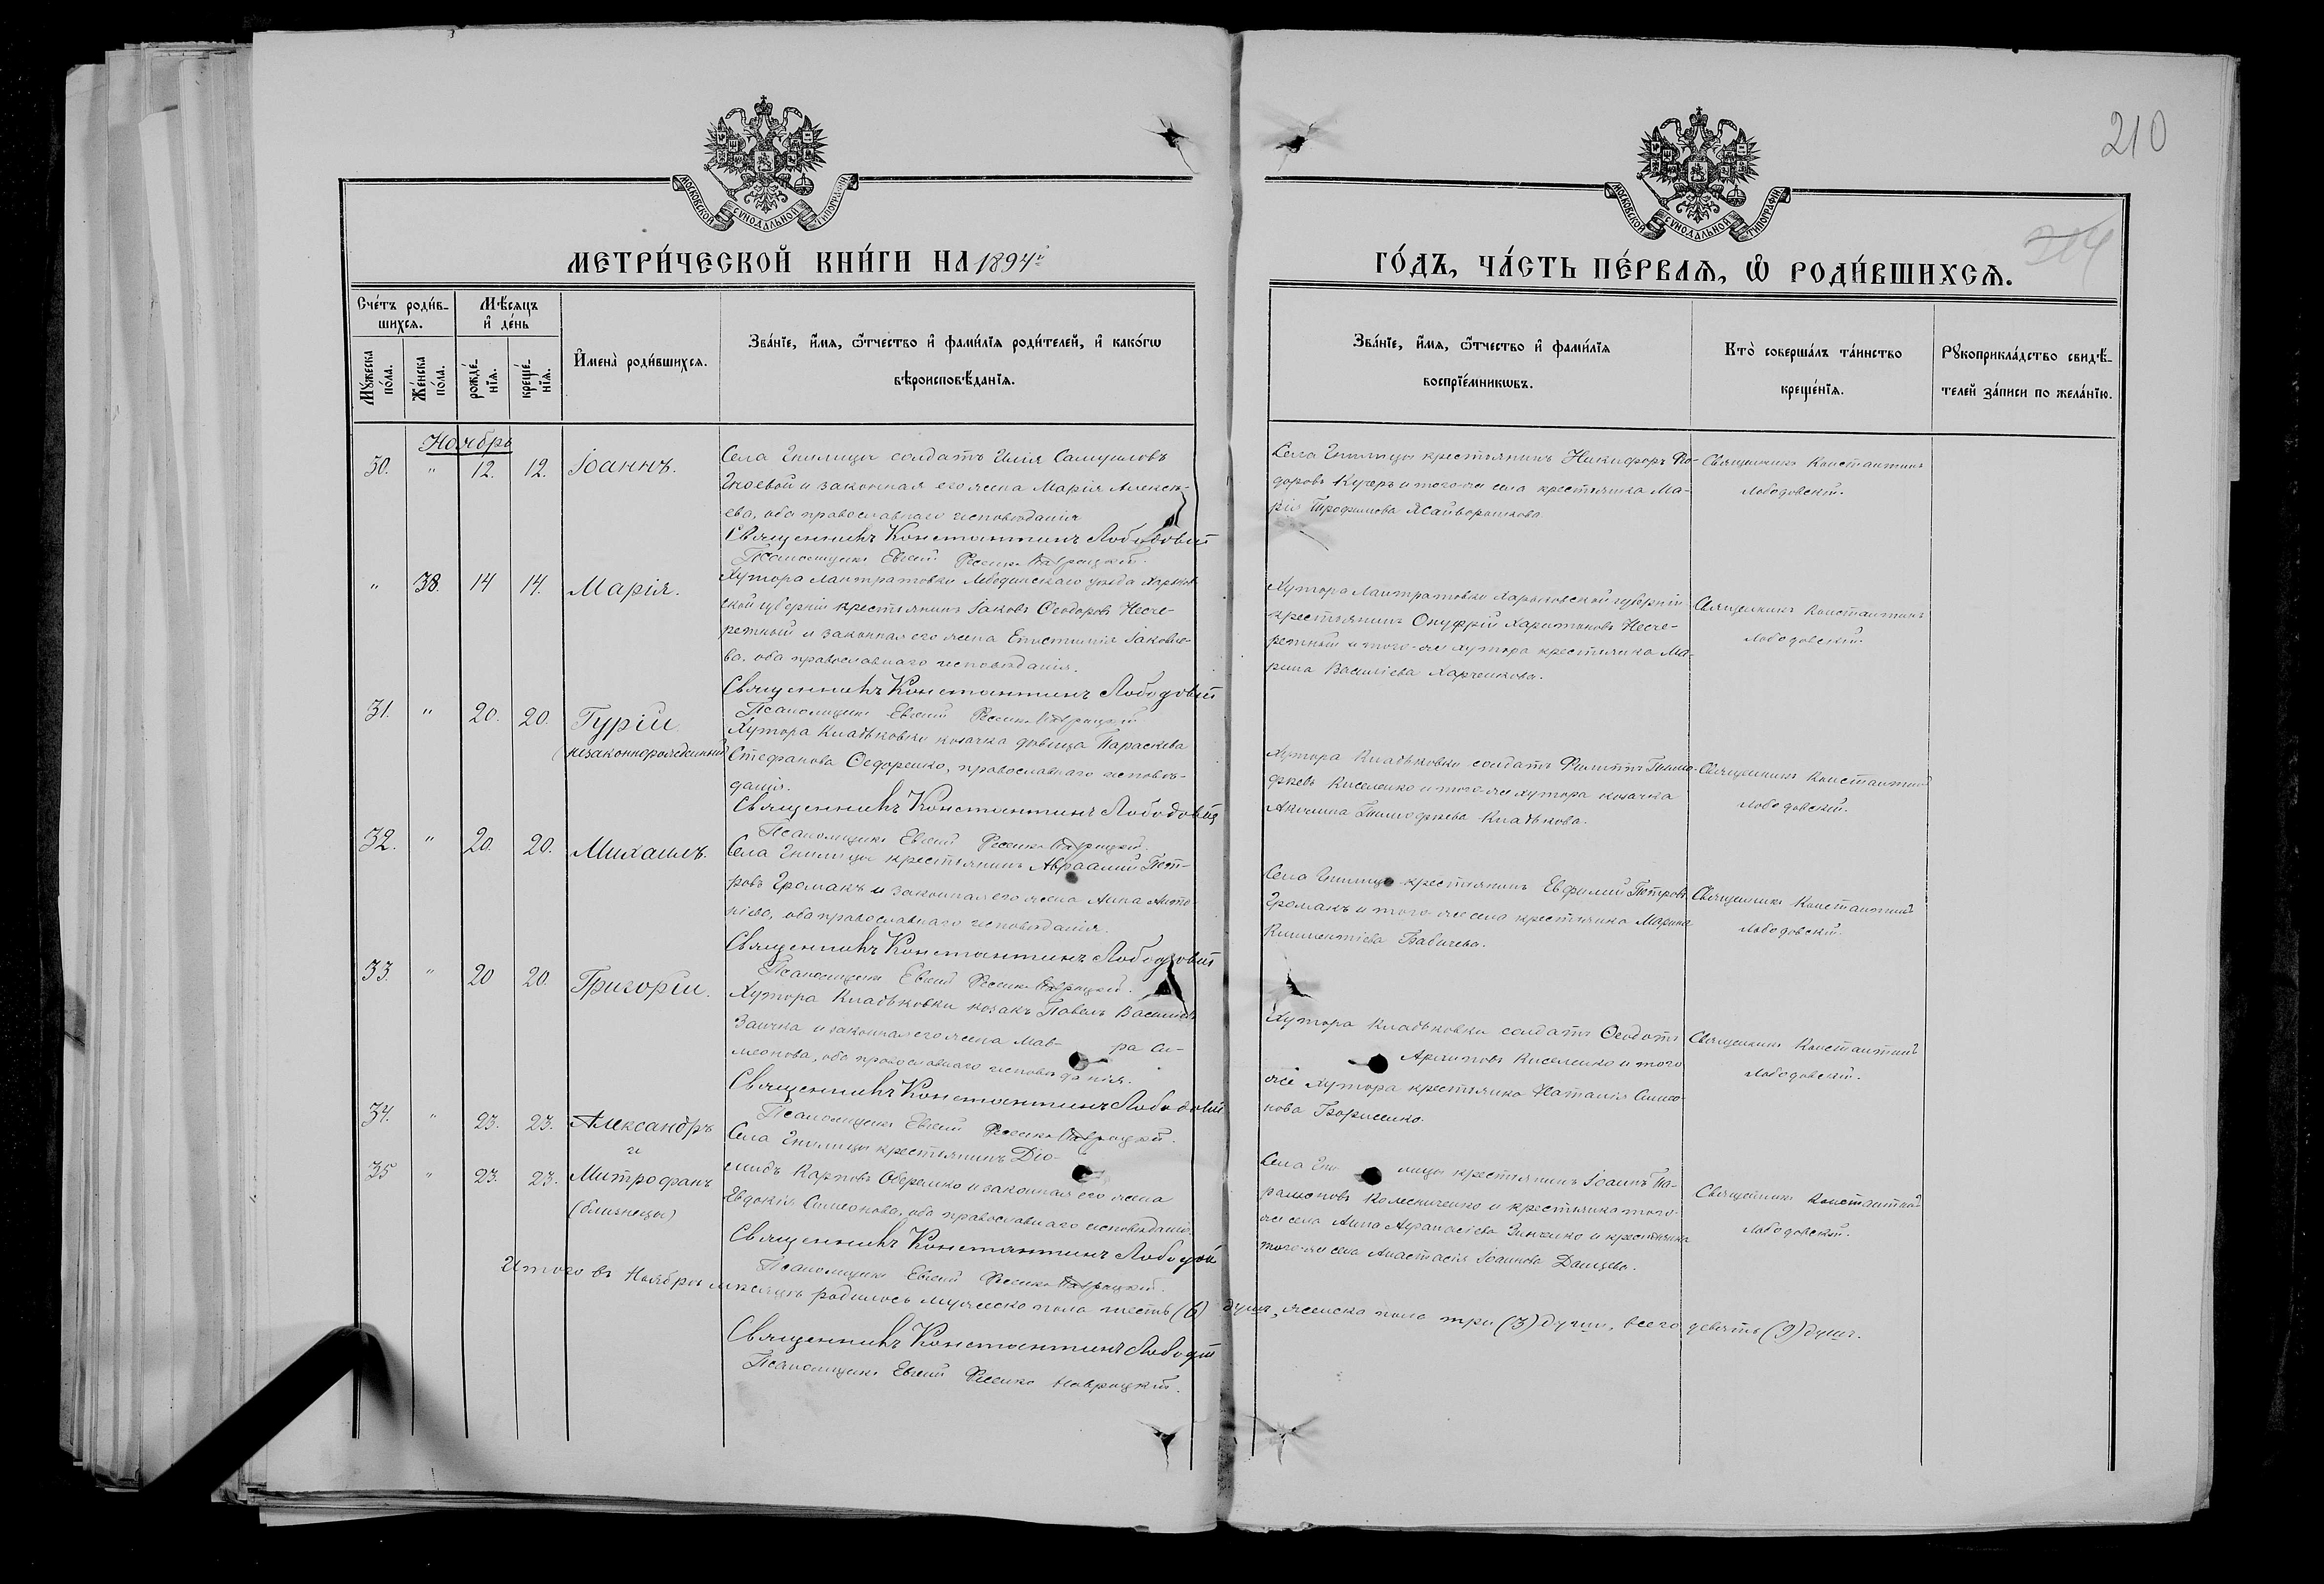 210
МОСКОВСКОЙ СѴНОДАЛЬНОЙ ТИПОГРАФІИ
МОСКОВСКОЙ СѴНОДАЛЬНОЙ ТИПОГРАФІИ
314
МЕТРИ́ЧЕСКОЙ КНИ́ГИ НА 1894й
ГО́ДЪ, ЧА́СТЬ ПЕ́РВАѦ, Ѿ РОДИ́ВШИХСѦ.
Сче́тъ роди́в-
шихсѧ.
Мꙋжеска по́ла.
Же́нска по́ла.
Мѣ́сѧцъ
и҆ де́нь
рожде́-
нїѧ.
креще́-
нїѧ.
И҆мена̀ роди́вшихсѧ.
Зва́нїе, и҆́мѧ, ѻ҆́тчество и҆ фами́лїѧ роди́телей, и҆ како́гѡ
вѣроисповѣ́данїѧ.
Зва́нїе, и҆́мѧ, ѻ҆́тчество и҆ фами́лїѧ
воспрїе́мникѡвъ.
Кто̀ соверша́лъ та́инство
креще́нїѧ.
Рꙋкоприкла́дство свидѣ́-
телей за́писи по жела́нїю.
Ноября
30. " 12. 12. Іоаннъ.
Села Гнилицы солдатъ Илія Самуиловъ
Гноевой и законная его жена Марія Алексѣ-
ева, оба православнаго исповѣданія
Священникъ Константинъ Лободовскій
Псаломщикъ Евгеній Навроцкій.
Села Гнилицы крестьянинъ Никифоръ Ѳе-
доровъ Кучеръ и того-же села крестьянка Ма-
рія Трофимова Жайворонкова.
Священникъ Константинъ
Лободовскій.
" 38. 14 14. Марія.
Хутора Лантратовки Лебединскаго уѣзда Харьков-
ской губерніи крестьянинъ Іаковъ Ѳеодоровъ Несче-
ретный и законная его жена Епистимія Іаковле-
ва, оба православнаго исповѣданія.
Священникъ Константинъ Лободовскій
Псаломщикъ Евгеній Навроцкій
Хутора Лантратовки Харьковской губерніи
крестьянинъ Онуфрій Харитоновъ Несче-
ретный и того-же хутора крестьянка Ма-
рина Василіева Харченкова.
Священникъ Константинъ
Лободовскій.
31. " 20. 20. Гурій
(незаконнорожденный)
Хутора Кладьковки козачка дѣвица Параскева
Стефанова Ѳедоренко, православнаго исповѣ-
данія.
Священникъ Константинъ Лободовскій
Псаломщикъ Евгеній Навроцкій.
Хутора Кладьковки солдатъ Филиппъ Тимо-
феевъ Киселенко и того-же хутора козачка
Акилина Тимофеева Кладькова.
Священникъ Константинъ
Лободовскій.
32. " 20. 20. Михаилъ.
Села Гнилицы крестьянинъ Авраамій Пет-
ровъ Громакъ и законная его жена Анна Анто-
ніева, оба православнаго исповѣданія.
Священникъ Константинъ Лободовскій
Псаломщикъ Евгеній Навроцкій.
Села Гнилицы крестьянинъ Евфимій Петровъ
Громакъ и того-же села крестьянка Марина
Климентіева Бабичева.
Священникъ Константинъ
Лободовскій.
33. " 20 20. Григорій.
Хутора Кладьковки козакъ Павелъ Василіевъ
Заичка и законная его жена Мав- ра Си-
меонова, оба православнаго исповѣданія.
Священникъ Константинъ Лободовскій
Псаломщикъ Евгеній Навроцкій.
Хутора Кладьковки солдатъ Ѳеодотъ
Архиповъ Киселенко и того
же хутора крестьянка Наталія Симео-
нова Борисенко.
Священникъ Константинъ
Лободовскій.
34. " 23. 23. Александръ
и
35 " 23. 23. Митрофанъ
(близнецы)
Села Гнилицы крестьянинъ Діо-
мидъ Карповъ Оберемко и законная его жена
Евдокія Симеонова, оба православнаго исповѣданія.
Священникъ Константинъ Лободовскій
Псаломщикъ Евгеній Навроцкій.
Села Гни лицы крестьянинъ Іоаннъ Па-
рамоновъ Колесниченко и крестьянка того-
же села Анна Афанасіева Зинченко и крестьянка
того-же села Анастасія Іоаннова Данцева.
Священникъ Константинъ
Лободовскій.
Итого въ Ноябрѣ мѣсяцѣ родилось мужеска пола шесть (6) душъ, женска пола три (3) души, всего девять (9) душъ.
Священникъ Константинъ Лободовскій
Псаломщикъ Евгеній Навроцкій.